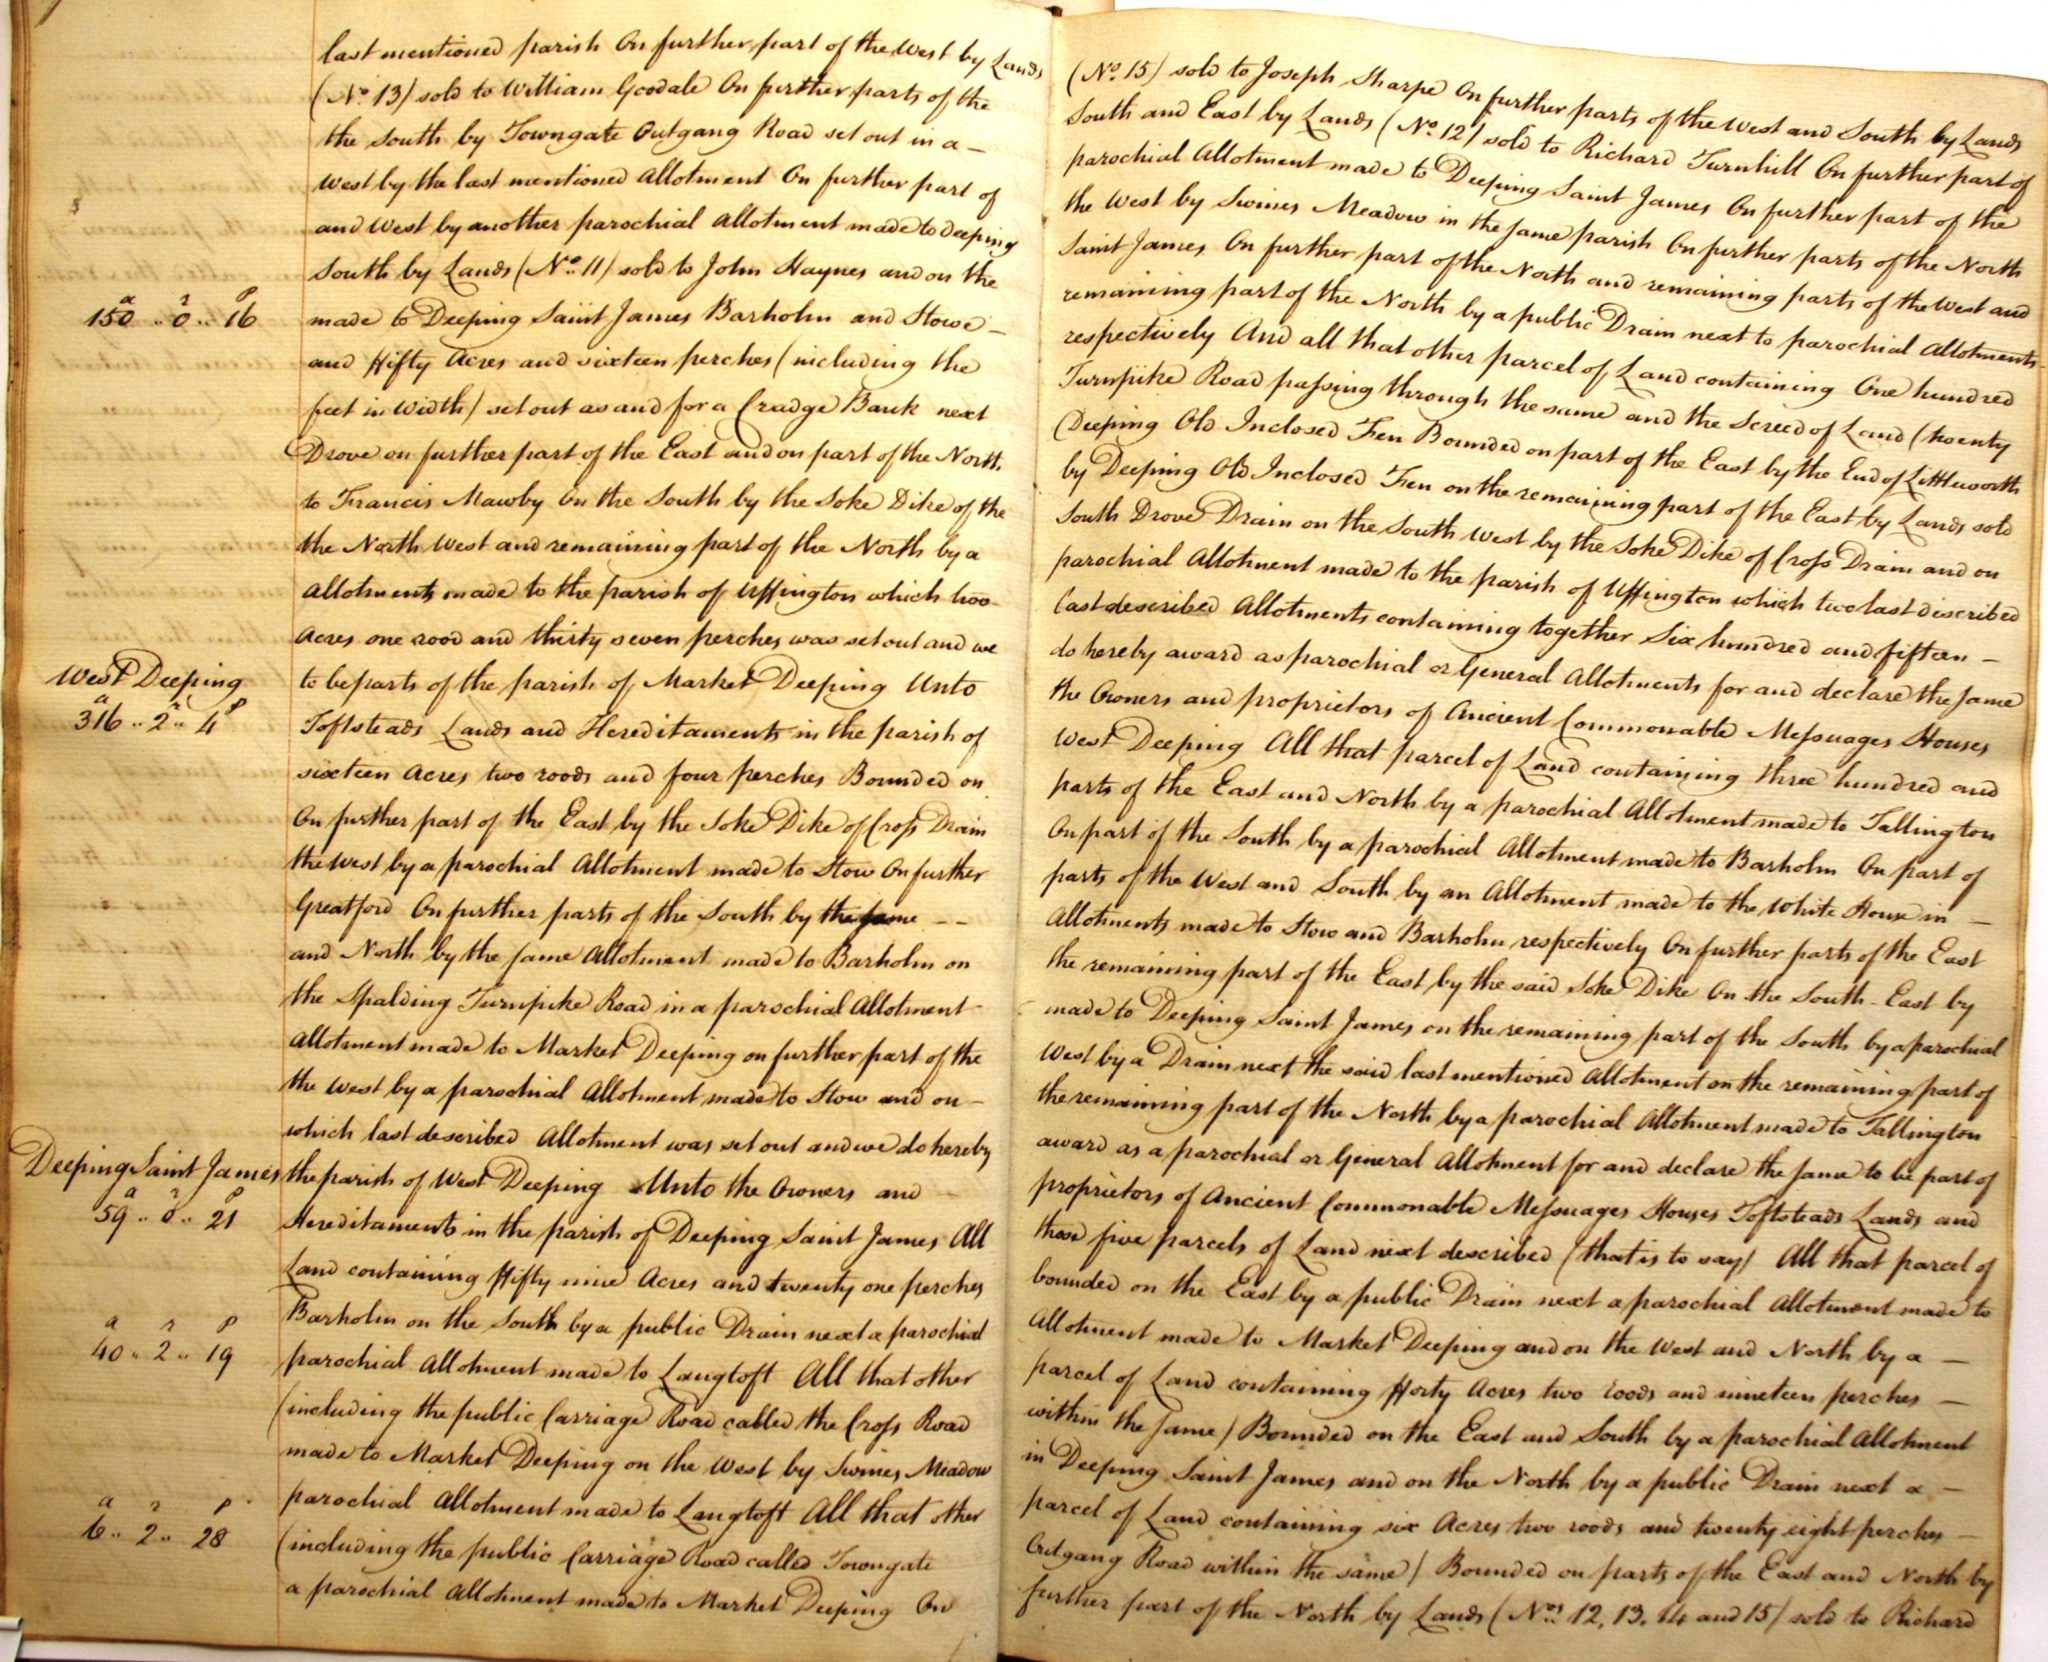 last mentioned parish On further part of the West by Lands (No. 15) sold to Joseph Sharpe On further parts of the West and South by Lands
(No. 13) sold to William Goodale On further parts of the South and East by Lands (No. 12) sold to Richard Turnhill On further part of
the South by Towngate Outgang Road set out in a — parochial Allotment made to Deeping Saint James On further part of the
West by the last mentioned Allotment On further part of the West by Swines Meadow in the same parish On further parts of the North
and West by another parochial Allotment made to Deeping Saint James On further part of the North and remaining parts of the West and
South by Lands (No. 11) sold to John Haynes and on the remaining part of the North by a public Drain next to parochial Allotments
a r p
150 .. 0 .. 16
made to Deeping Saint James Barholm and Stowe — respectively And all that other parcel of Land containing One hundred
and ffifty Acres and sixteen perches (including the Turnpike Road passing through the same and the Screed of Land (twenty
feet in Width) set out as and for a Cradge Bank next Deeping Old Inclosed Fen Bounded on part of the East by the End of Littleworth
Drove on further part of the East and on part of the North by Deeping Old Inclosed Fen on the remaining part of the East by Lands sold
to Francis Mawby On the South by the Soke Dike of the South Drove Drain on the South West by the Soke Dike of Cross Drain and on
the North West and remaining part of the North by a parochial Allotment made to the parish of Uffington which two last discribed
Allotments made to the parish of Uffington which two last described Allotments containing together Six hundred and fifteen —
Acres one rood and thirty seven perches was set out and we do hereby award as parochial or General Allotments for and declare the same
West Deeping
to be parts of the parish of Market Deeping Unto the Owners and proprietors of Ancient Commonable Messuages Houses
a r p
316 .. 2 .. 4
Toftsteads Lands and Hereditaments in the parish of West Deeping All that parcel of Land containing three hundred and
sixteen Acres two roods and four perches Bounded on parts of the East and North by a parochial Allotment made to Tallington
On further part of the East by the Soke Dike of Cross Drain On part of the South by a parochial Allotment made to Barholm On part of
the West by a parochial Allotment made to Stow On further parts of the West and South by an Allotment made to the White House in —
Greatford On further parts of the South by the same — — Allotments made to Stow and Barholm respectively On further parts of the East
and North by the same Allotment made to Barholm on the remaining part of the East by the said Soke Dike On the South-East by
the Spalding Turnpike Road in a parochial Allotment — made to Deeping Saint James on the remaining part of the South by a parochial
Allotment made to Market Deeping on further part of the West by a Drain next the said last mentioned Allotment on the remaining part of
the West by a parochial Allotment made to Stow and on — the remaining part of the North by a parochial Allotment made to Tallington
which last described Allotment was set out and we do hereby award as a parochial or General Allotment for and declare the same to be part of
Deeping Saint James
the parish of West Deeping Unto the Owners and — proprietors of Ancient Commonable Messuages Houses Toftsteads Lands and
a r p
59 .. 0 .. 21
Hereditaments in the parish of Deeping Saint James All those five parcels of Land next described (that is to say) All that parcel of
Land containing ffifty nine Acres and twenty one perches bounded on the East by a public Drain next a parochial Allotment made to
Barholm on the South by a public Drain next a parochial Allotment made to Market Deeping and on the West and North by a —
a r p
40 .. 2 .. 19
parochial Allotment made to Langtoft All that other parcel of Land containing fforty Acres two roods and nineteen perches —
(including the public Carriage Road called the Cross Road within the same) Bounded on the East and South by a parochial Allotment
made to Market Deeping on the West by Swines Meadow in Deeping Saint James and on the North by a public Drain next a —
a r p
6 .. 2 .. 28
parochial Allotment made to Langtoft All that other parcel of Land containing six Acres two roods and twenty eight perches —
(including the public Carriage Road called Towngate Outgang Road within the same) Bounded on parts of the East and North by
a parochial Allotment made to Market Deeping On further part of the North by Lands (Nos. 12, 13, 14 and 15) sold to Richard